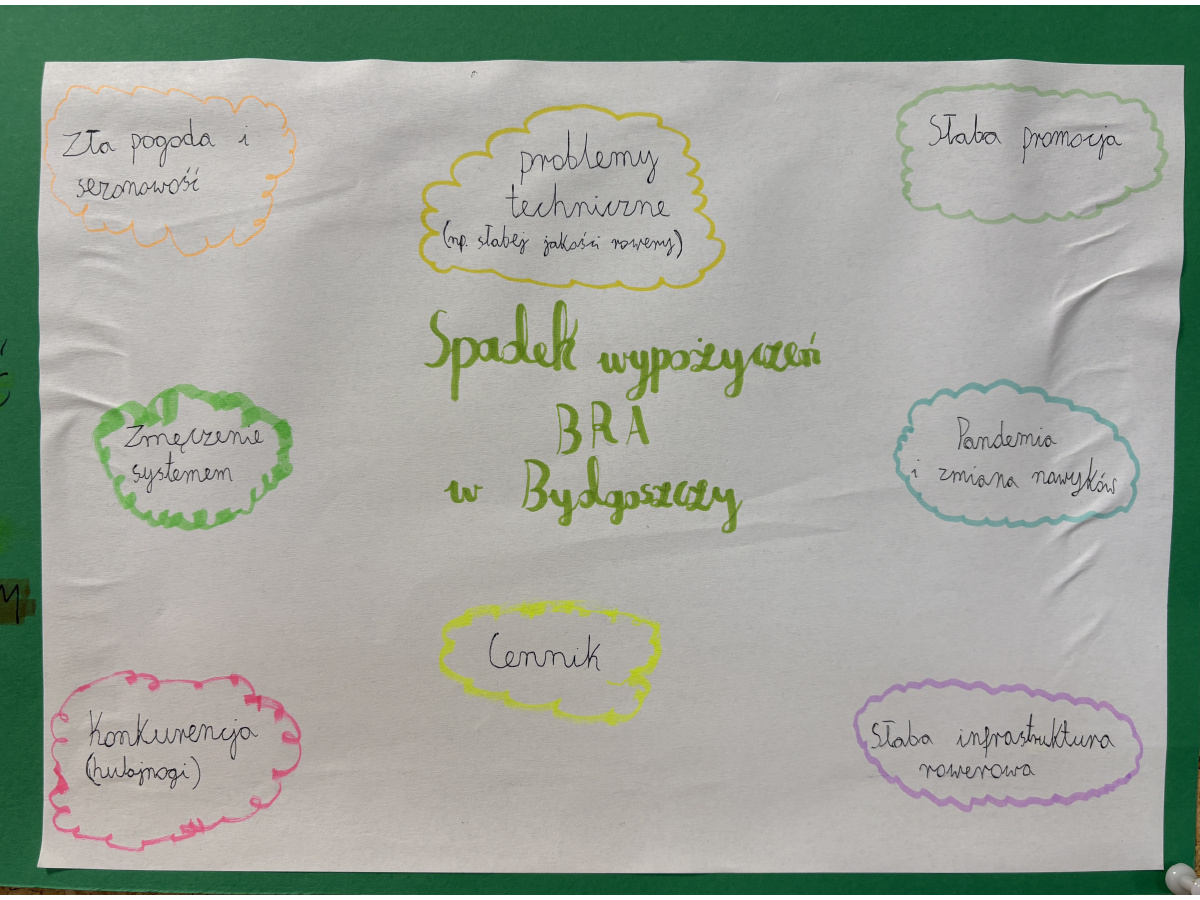 Zła pogoda i
sezonowość
problemy
techniczne
(np. słabej jakości rowery)
Słaba promocja
Spadek wypożyczeń
BRA
w Bydgoszczy
Zmęczenie
systemem
Pandemia
i zmiana nawyków
Cennik
Konkurencja
(hulajnogi)
Słaba infrastruktura
rowerowa